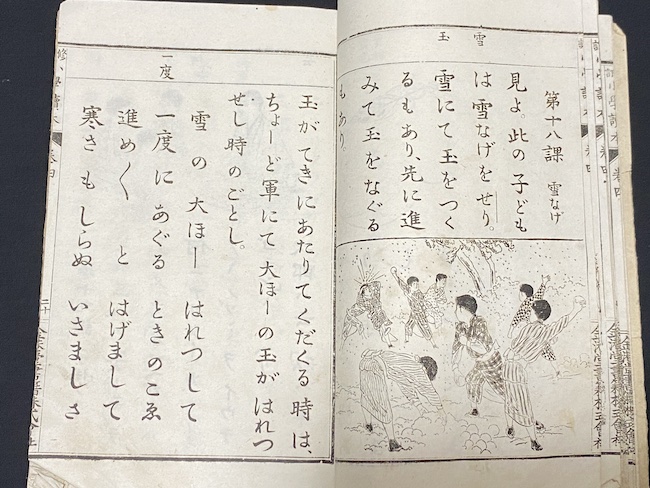 雪
玉
第十八課 雪なげ
見よ。此の子ども
は雪なげをせり。
雪にて玉をつく
るもあり、先に進
みて玉をなぐる
もあり。
一度
玉がてきにあたりてくだくる時は、
ちょーど軍にて大ほーの玉がはれつ
せし時のごとし。
雪の大ほー はれつして
一度にあぐる ときのこゑ
進め〱と はげまして
寒さもしらぬ いさましさ
二十